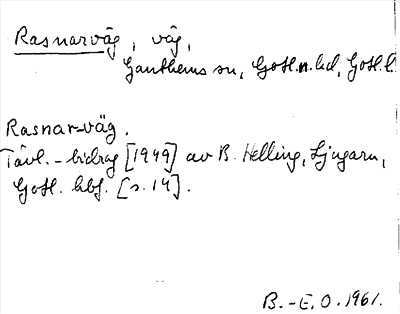 Rasnarväg, väg,
Ganthems sn, Gotl.n. hd, Gotl. l.
Rasnar-väg.
Tävl.-bidrag [1949] av B. Helling, Ljugarn,
Gotl. hbf. [s. 14].
B.-E. O. 1961.